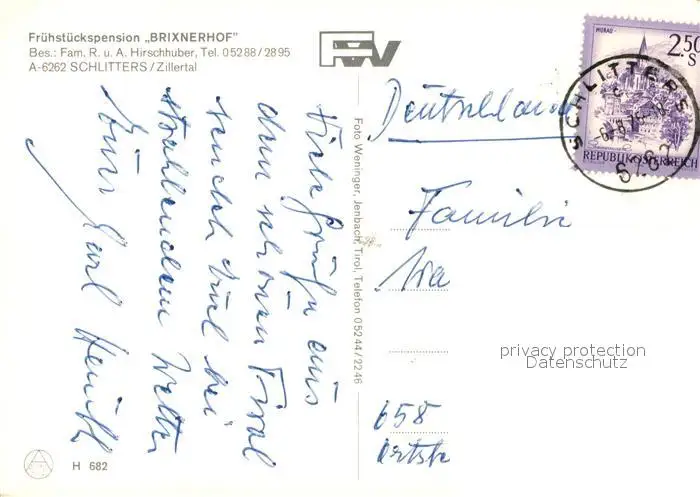 Frühstückspension „BRIXNERHOF"
Bes.: Fam. R. u. A. Hirschhuber, Tel. 05288/2895
A-6262 SCHLITTERS/Zillertal
Viele Grüße aus
dem schönen Tirol
sendet Euch bei
strahlendem Wetter
Euer Karl
Foto Weninger, Jenbach, Tirol, Telefon 05244/2246
MURAU
2.50
S
REPUBLIK ÖSTERREICH
SCHLITTERS
6262
Deutschland
Familie
privacy protection
Datenschutz
658
H 682